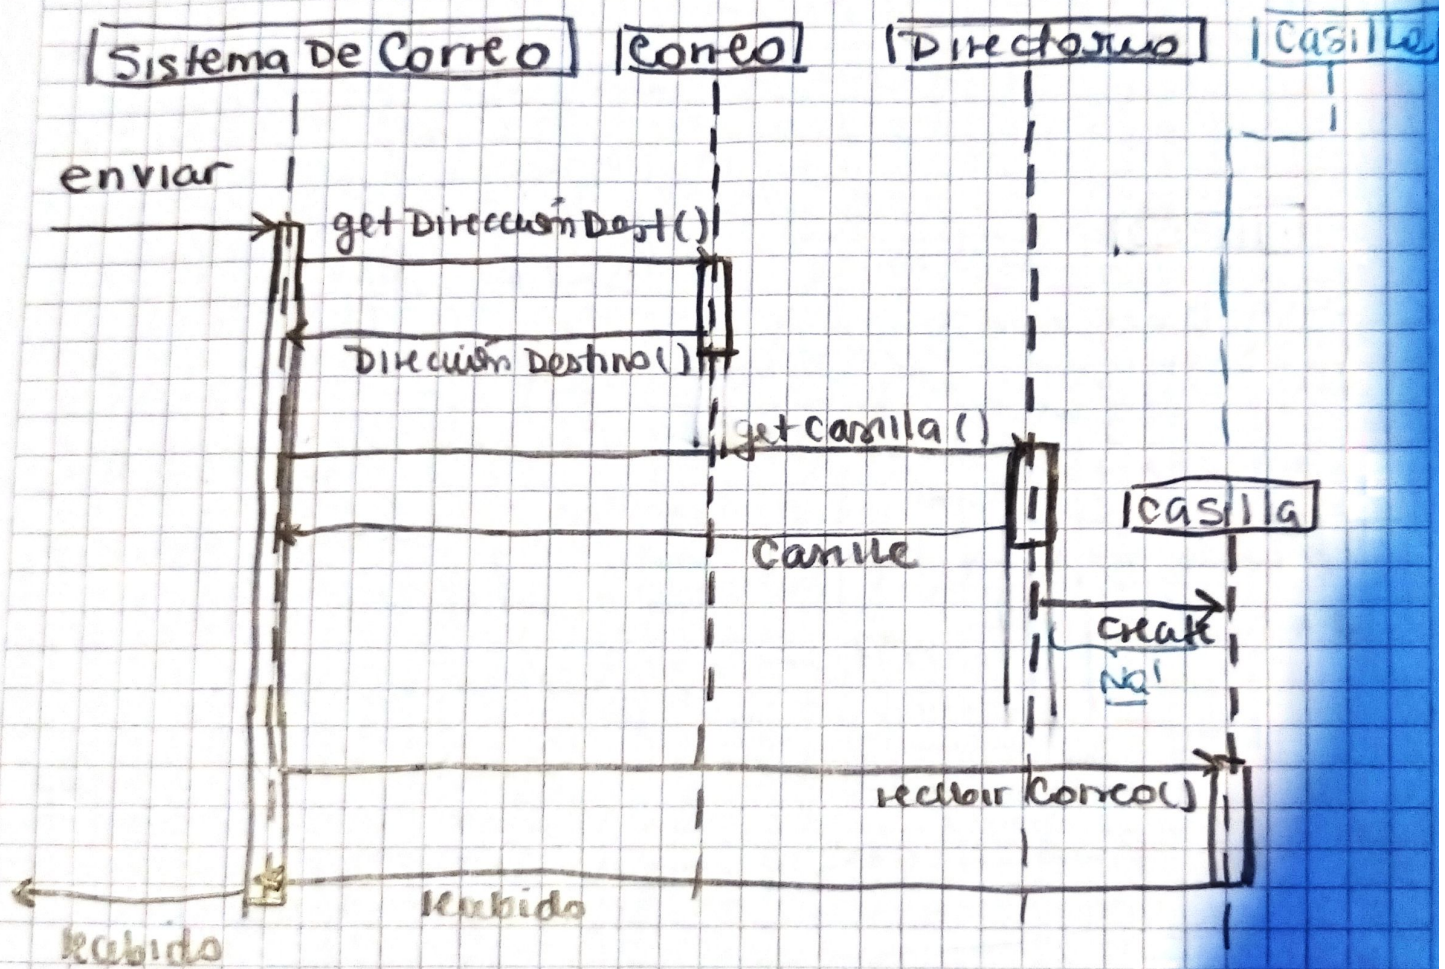 Sistema De Correo
Correo
Directorio
Casilla
enviar
getDirecciónDest()
Dirección Destino()
getCasilla()
Casilla
Casilla
create
No!
recibir Correo()
recibido
recibido